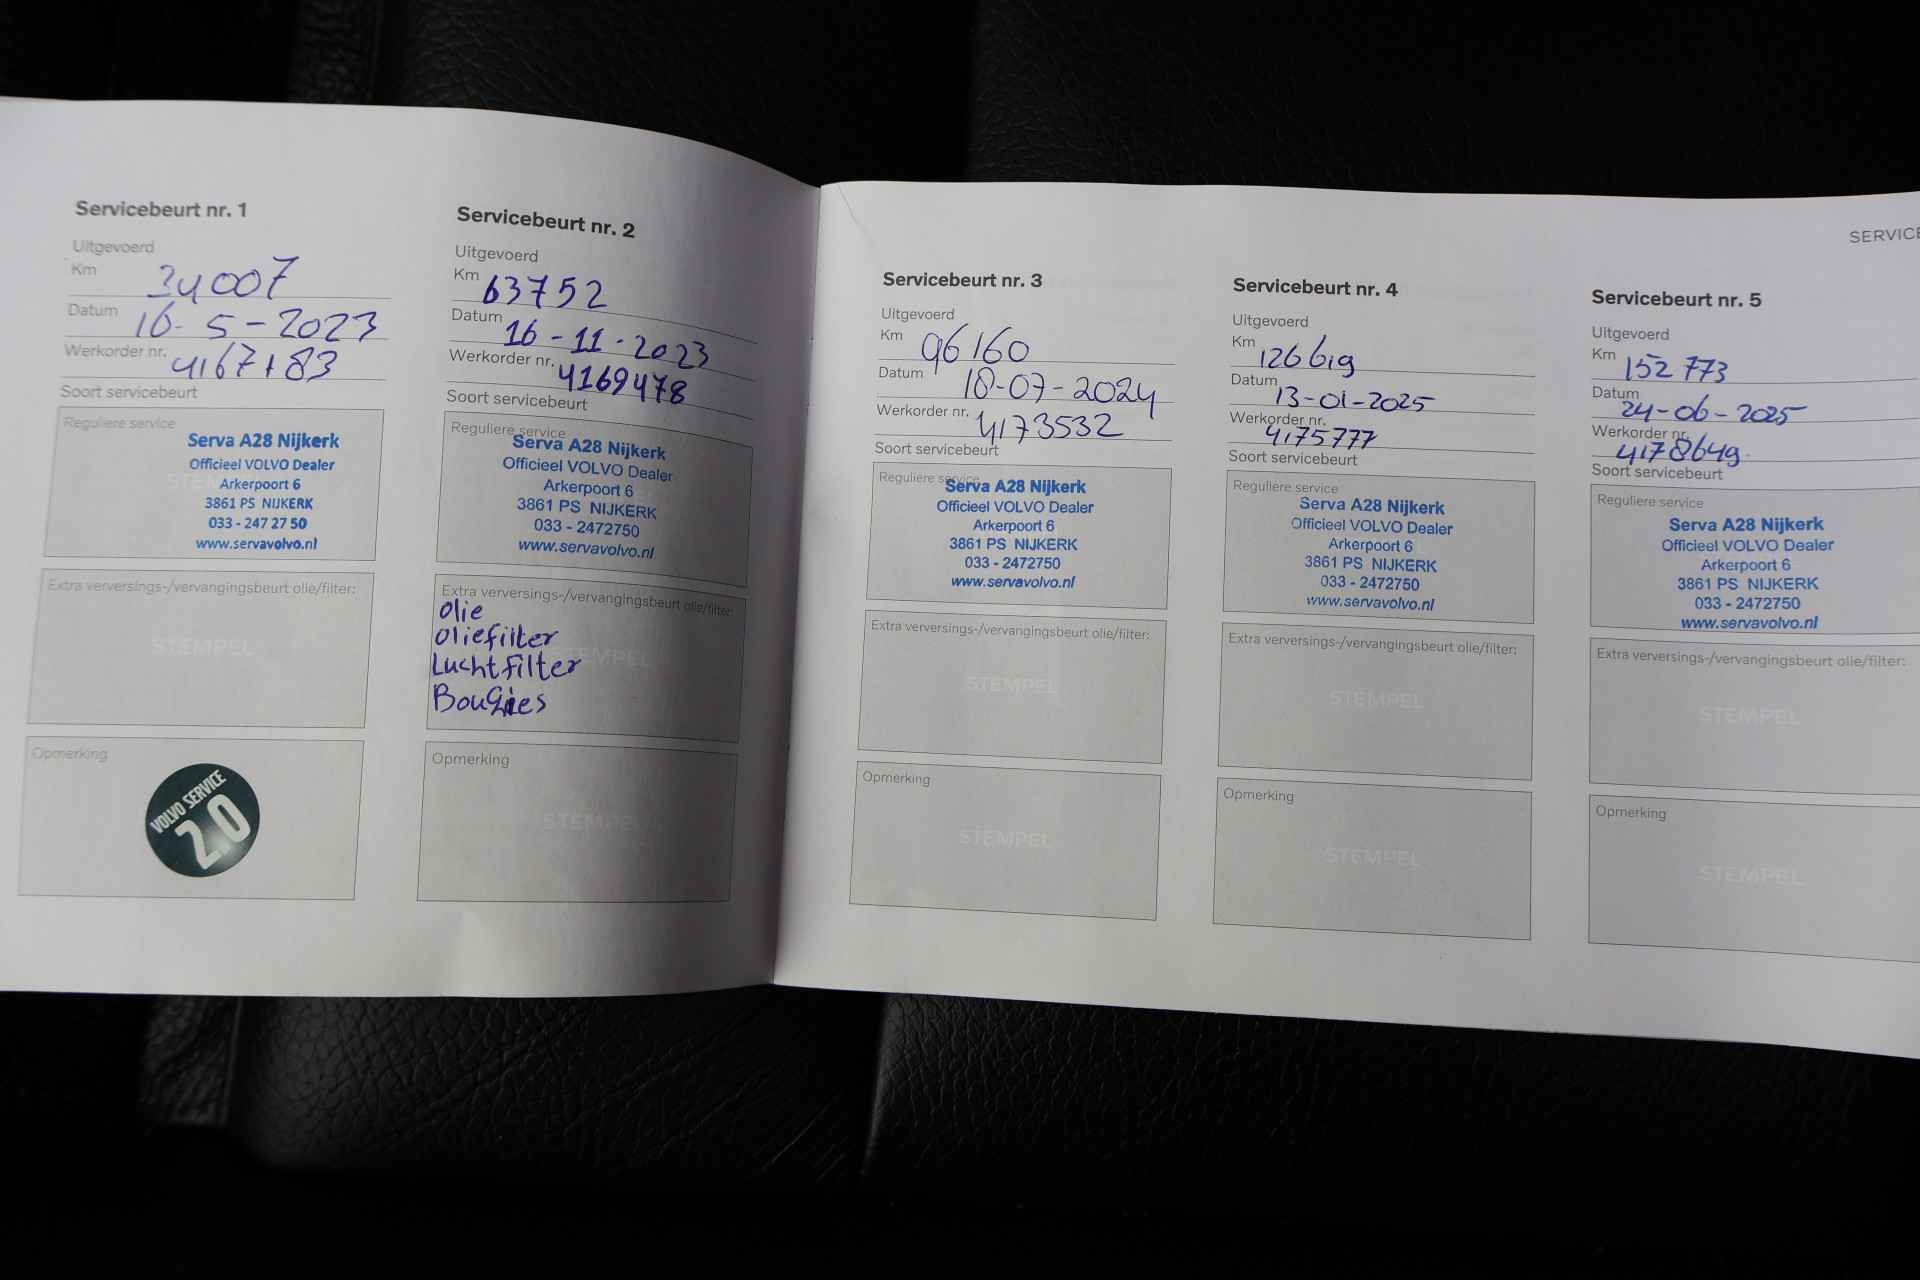 SERVICE
Servicebeurt nr. 1
Uitgevoerd
Km 34007
Datum 16-5-2023
Werkorder nr. 4167183
Soort servicebeurt
Reguliere service
Serva A28 Nijkerk
Officieel VOLVO Dealer
Arkerpoort 6
3861 PS NIJKERK
033 - 247 27 50
www.servavolvo.nl
Extra verversings-/vervangingsbeurt olie/filter:
STEMPEL
Opmerking
VOLVO SERVICE
2.0
Servicebeurt nr. 2
Uitgevoerd
Km 63752
Datum 16-11-2023
Werkorder nr. 4169478
Soort servicebeurt
Reguliere service
Serva A28 Nijkerk
Officieel VOLVO Dealer
Arkerpoort 6
3861 PS NIJKERK
033 - 2472750
www.servavolvo.nl
Extra verversings-/vervangingsbeurt olie/filter:
olie
oliefilter
Luchtfilter
Bougies
STEMPEL
Opmerking
STEMPEL
Servicebeurt nr. 3
Uitgevoerd
Km 96160
Datum 18-07-2024
Werkorder nr. 4173532
Soort servicebeurt
Reguliere service
Serva A28 Nijkerk
Officieel VOLVO Dealer
Arkerpoort 6
3861 PS NIJKERK
033 - 2472750
www.servavolvo.nl
Extra verversings-/vervangingsbeurt olie/filter:
STEMPEL
Opmerking
STEMPEL
Servicebeurt nr. 4
Uitgevoerd
Km 126619
Datum 13-01-2025
Werkorder nr. 4175777
Soort servicebeurt
Reguliere service
Serva A28 Nijkerk
Officieel VOLVO Dealer
Arkerpoort 6
3861 PS NIJKERK
033 - 2472750
www.servavolvo.nl
Extra verversings-/vervangingsbeurt olie/filter:
STEMPEL
Opmerking
STEMPEL
Servicebeurt nr. 5
Uitgevoerd
Km 152 773
Datum 24-06-2025
Werkorder nr. 4178649
Soort servicebeurt
Reguliere service
Serva A28 Nijkerk
Officieel VOLVO Dealer
Arkerpoort 6
3861 PS NIJKERK
033 - 2472750
www.servavolvo.nl
Extra verversings-/vervangingsbeurt olie/filter:
STEMPEL
Opmerking
STEMPEL